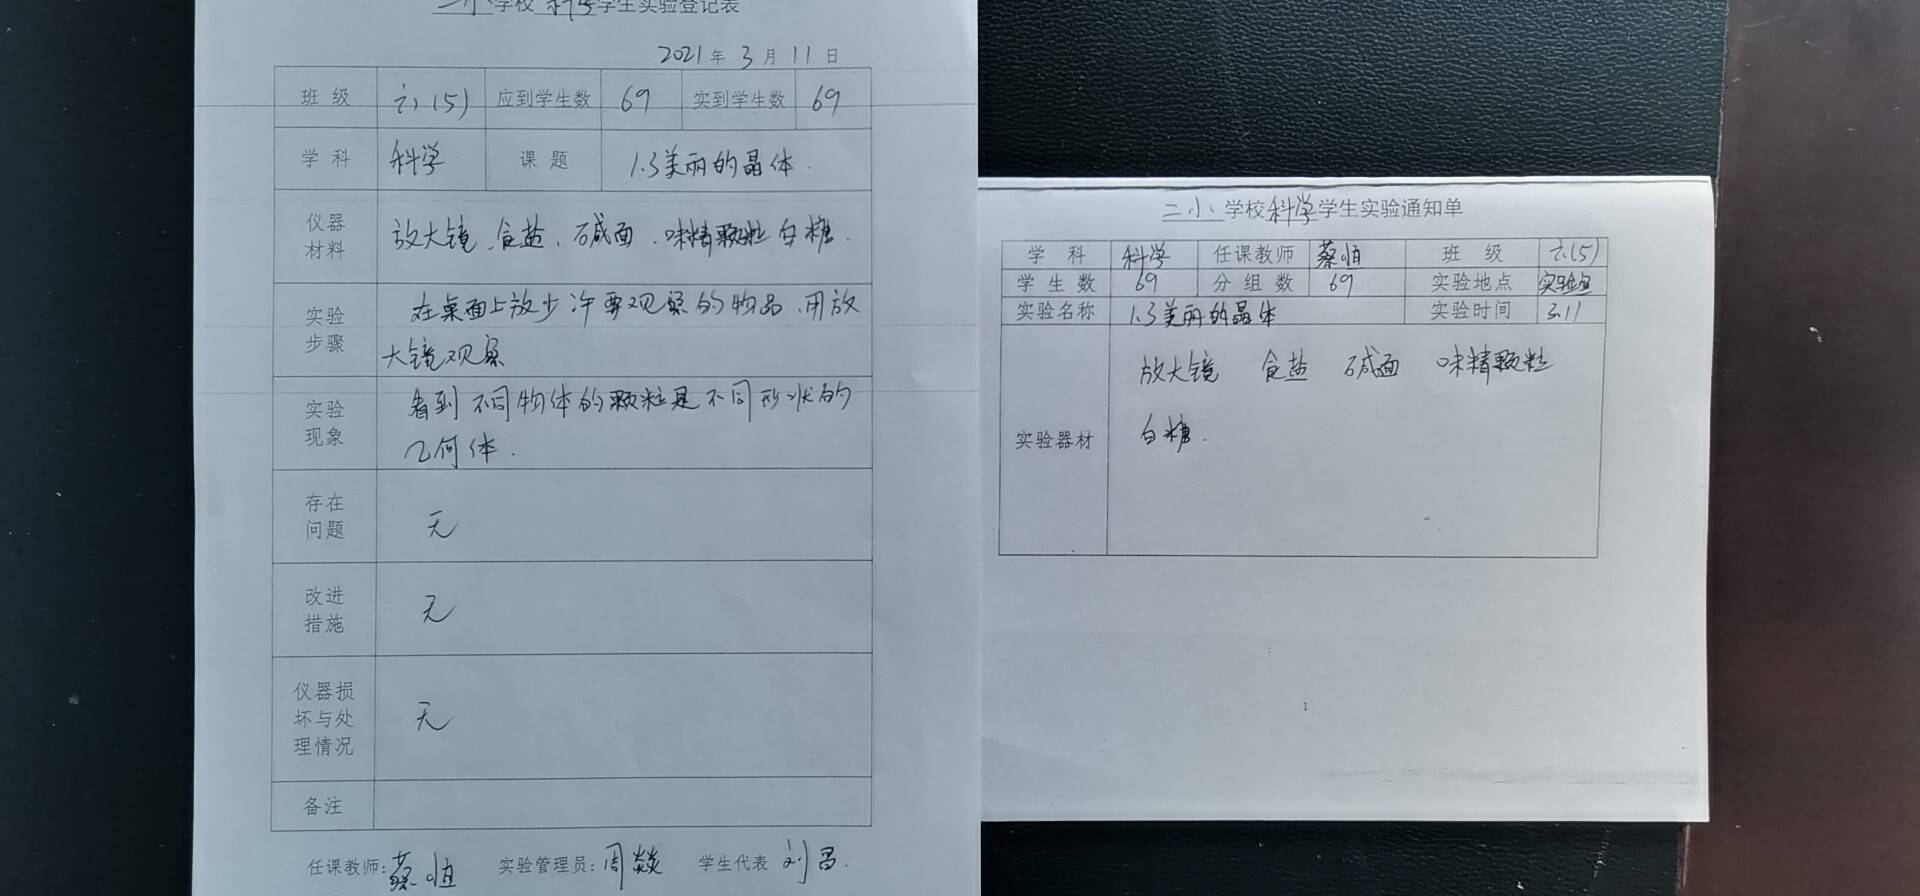 二小学校科学学生实验登记表
2021年3月11日
班级 六(5) 应到学生数 69 实到学生数 69
学科 科学 课题 1.3美丽的晶体.
仪器
材料
放大镜、食盐、碱面、味精颗粒 白糖.
实验
步骤
在桌面上放少许要观察的物品、用放
大镜观察
实验
现象
看到不同物体的颗粒是不同形状的
几何体.
存在
问题
无
改进
措施
无
仪器损
坏与处
理情况
无
备注
任课教师:蔡恒 实验管理员:周燚 学生代表 刘昌.
二小学校科学学生实验通知单
学科 科学 任课教师 蔡恒 班级 六(5)
学生数 69 分组数 69 实验地点 实验室
实验名称 1.3美丽的晶体 实验时间 3.11
实验器材
放大镜 食盐 碱面 味精颗粒
白糖.